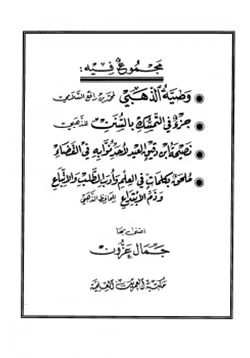 مجموع فيه :
وصية الذهبي لمحمد بن رافع السلامي
جزء في التمسك بالسنن للذهبي
نصيحة ابن دقيق العيد لأحد نوابه في القضاء
ملحق بكلمات في العلم وأدب الطلب والاتباع
وذم الابتداع للحافظ الذهبي
اعتنى بها
جمال عزون
مكتبة العمرين العلمية